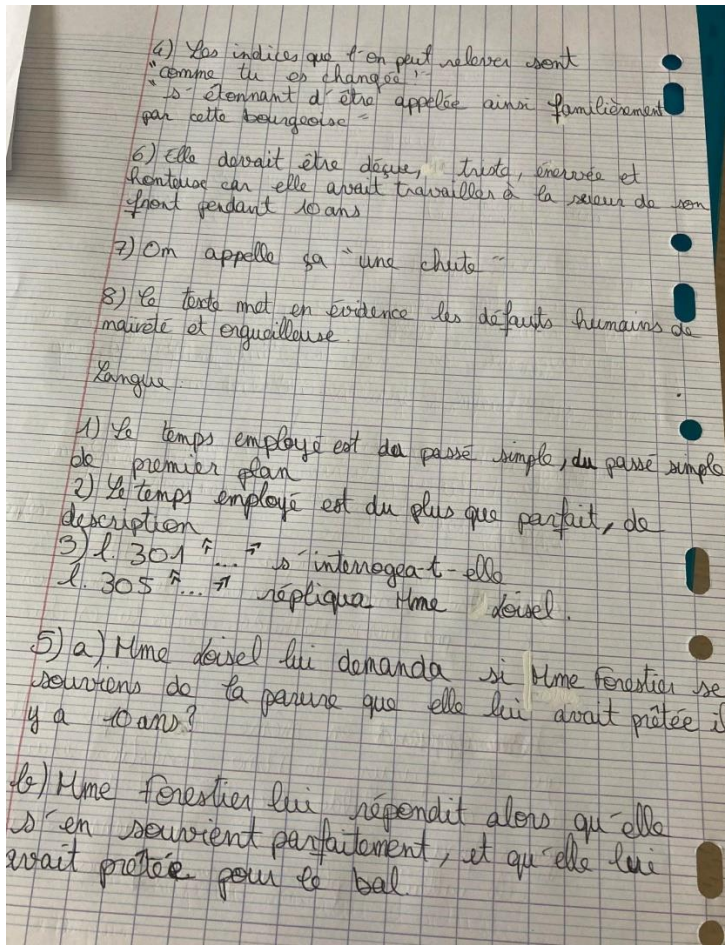 4) Les indices que l'on peut relever sont
"comme tu es changée !"
"s'étonnant d'être appelée ainsi familièrement
par cette bourgeoise"
6) Elle devait être déçue, triste, énervée et
honteuse car elle avait travailler à la sueur de son
front pendant 10 ans
7) On appelle sa "une chute"
8) Le texte met en évidence les défauts humains de
naïveté et orgueilleuse.
Langue
1) Le temps employé est du passé simple, du passé simple
de premier plan
2) Le temps employé est du plus que parfait, de
description
3) l. 301 "..." s'interrogea-t-elle
l. 305 "..." répliqua Mme Loisel.
5) a) Mme Loisel lui demanda si Mme Forestier se
souviens de la parure que elle lui avait prêtée il
y a 10 ans?
b) Mme Forestier lui répondit alors qu'elle
s'en souvient parfaitement, et qu'elle lui
avait prêtée pour le bal.